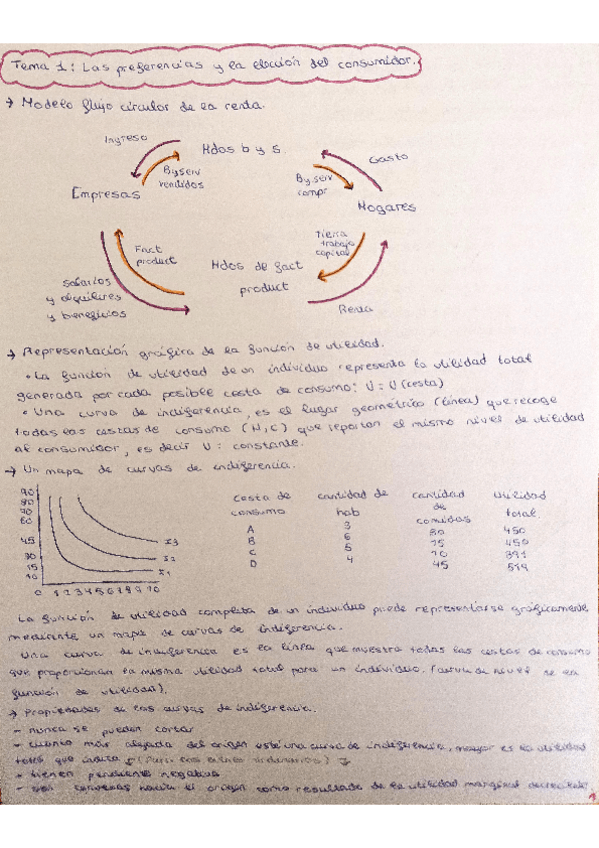 Tema 1: Las preferencias y la elección del consumidor.
→ Modelo flujo circular de la renta.
Ingreso
Mdos b y s.
Gasto
B y serv
vendidos
B y serv
compr
Empresas
Hogares
Fact
product
Tierra
trabajo
capital
Mdos de fact
product
salarios
y alquileres
y beneficios
Renta
→ Representación gráfica de la función de utilidad.
• La función de utilidad de un individuo representa la utilidad total
generada por cada posible cesta de consumo: U = U (cesta)
• Una curva de indiferencia, es el lugar geométrico (línea) que recoge
todas las cestas de consumo (H,C) que reportan el mismo nivel de utilidad
al consumidor, es decir U = constante.
→ Un mapa de curvas de indiferencia.
90
80
70
60
45
30
15
10
0 1 2 3 4 5 6 7 8 9 10
I3
I2
I1
cesta de consumo cantidad de hab cantidad de comidas utilidad total
A 3 80 450
B 6 75 450
C 5 70 391
D 4 45
La función de utilidad completa de un individuo puede representarse gráficamente
mediante un mapa de curvas de indiferencia.
Una curva de indiferencia es la línea que muestra todas las cestas de consumo
que proporcionan la misma utilidad total para un individuo. (curva de nivel de la
función de utilidad).
→ Propiedades de las curvas de indiferencia.
- nunca se pueden cortar
- cuanto más alejada del origen esté una curva de indiferencia, mayor es la utilidad
total que indica (Para los bienes ordinarios)
- tienen pendiente negativa
- son convexas hacia el origen como resultado de la utilidad marginal decreciente
1